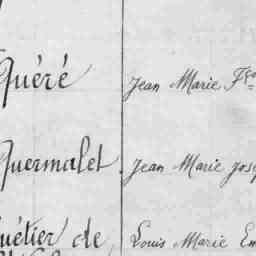 Quéré Jean Marie Fçois
Quermalet Jean Marie Jose
uétier de Louis Marie Em